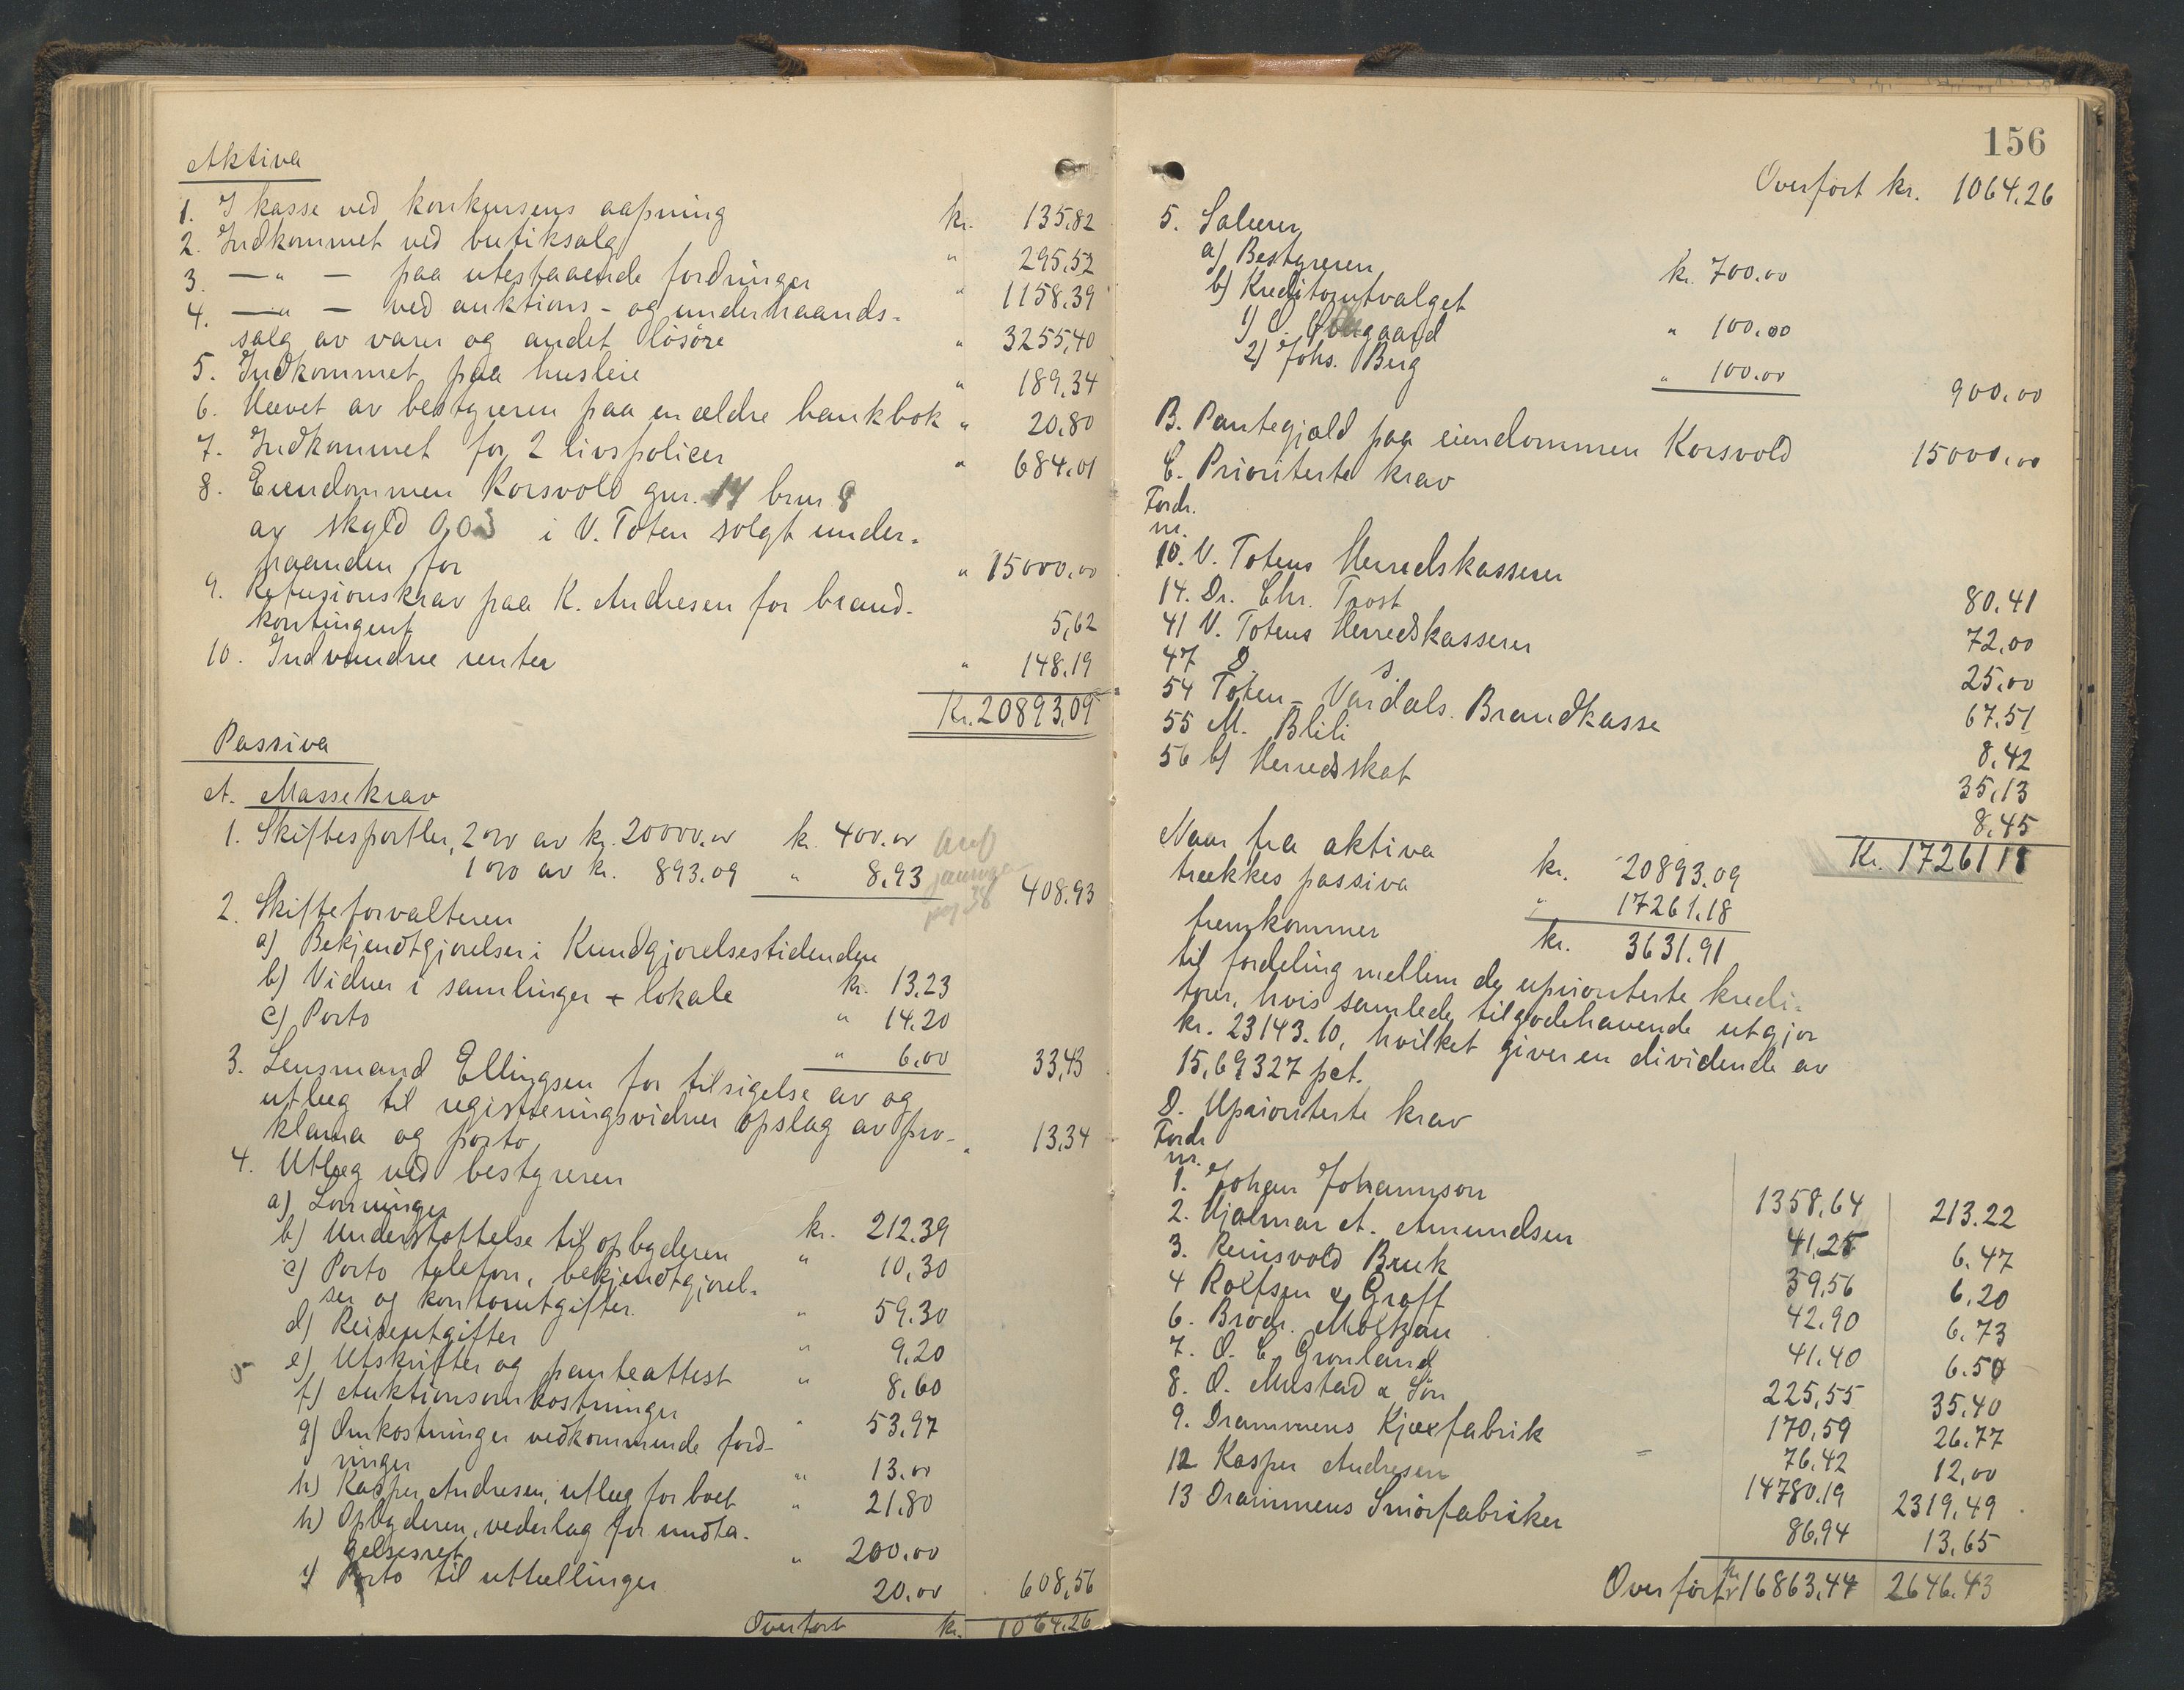 Aktiva
1. I kasse ved konkursens aapning kr. 135,82
2. Indkommet ved butiksalg " 295,52
3. — " — paa utestaaende fordringer " 1158.39
4. — " — ved auktions- og underhaands-
salg av varer og andet lösöre " 3255,40
5. Indkommet paa husleie " 189,34
6. Hævet av bestyreren paa en ældre bankbok " 20,80
7. Indkommet for 2 livspolicer " 684.01
8. Eiendommen Korsvold gnr. 14 brnr 8
av skyld 0,03 i V. Toten solgt under-
haanden for " 15000.00
9. Refusionskrav paa K. Andresen for brand-
kontingent 5,62
10. Indvundne renter " 148.19
Kr. 20893,09
Passiva
A. Massekrav
1. Skiftesportler, 2 o/o av kr. 20000.00 kr. 400.00
1 o/o av kr. 893.09 " 8.93 408.93
pag 38
2. Skifteforvalteren
a) Bekjendtgjørelser i Kundgjørelsestidenden kr. 13,23
b) Vidner i samlinger + lokale " 14.20
c) Porto " 6,00 33,43
3. Lensmand Ellingsen for tilsigelse av og
utlæg til registreringsvidner opslag av pro-
klama og porto " 13.34
4. Utlæg ved bestyreren
a) Lønninger kr. 212.39
b) Understøttelse til opbyderen " 10,30
c) Porto telefon, bekjendtgjørel-
ser og kontorutgifter. " 59.30
d) Reiseutgifter " 9,20
e) Utskrifter og panteattest " 8.60
f) Auktionsomkostninger " 53.97
g) Omkostninger vedkommende ford-
ringer " 13.00
h) Kasper Andresen, utlæg for boet " 21.80
h) Opbyderen, vederlag for undta-
gelsesret " 200.00
i) Porto til uttællinger 20.00 608,56
Overført kr. 1064.26
156
Overført kr. 1064.26
5. Salærer
a) Bestyreren kr. 700.00
b) Kreditorutvalget
1) " 100.00
2) Johs. Berg " 100.00 900.00
B. Pantegjæld paa eiendommen Korsvold 15000.00
C. Prioriterte krav
Fordr.
nr.
10. V. Totens Herredskasserer 80.41
14. Dr. Chr. Trost 72,00
41 V. Totens Herredskasserer 25.00
47 D. s. 67.51
54 Toten-Vardals. Brandkasse 8.42
55 M. Blili 35,13
56 b) Herredsskat 8.45
Kr. 17261 18
Naar fra aktiva kr. 20893.09
trækkes passiva " 17261.18
fremkommer kr. 3631.91
til fordeling mellem de uprioriterte kredi-
torer, hvis samlede tilgodehavende utgjør
kr. 23143.10, hvilket giver en dividende av
15,69327 pct.
D. Uprioriterte krav
Fordr
nr.
1. Johan Johannson 1358.64 213.22
2. Hjalmar A. Amundsen 41,25 6.47
3. Reinsvold Bruk 39,56 6.20
4 Rolfsen & Graff 42.90 6.73
6. Brødr. Moltzau 41.40 6.50
7. O. C. Grønland 225,55 35.40
8. O. Mustad & Søn 170,59 26.77
9. Drammens Kjæxfabrik 76.42 12,00
12 Kasper Andresen 14780.19 2319.49
13 Drammens Smørfabriker 86.94 13.65
Overført kr 16863,44 2646.43